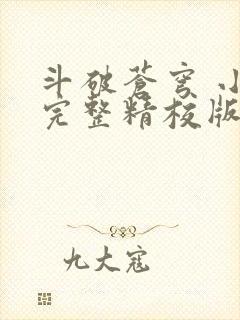 斗破苍穹 小
完整精校版
九大寇